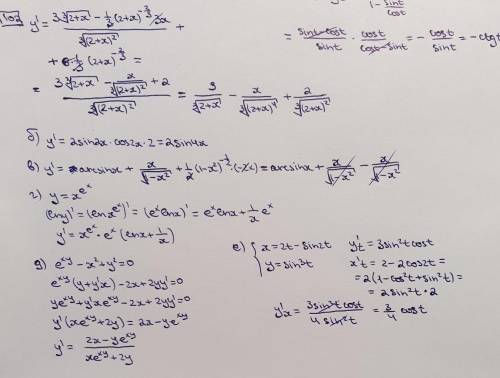 y' = (3∛(2+x) − 1/3 (2+x)^(−2/3) · 3x) / ∛(2+x)² +
+ 6·1/3 (2+x)^(−2/3) =
= (3∛(2+x) − x/∛(2+x)² + 2) / ∛(2+x)² = 3/∛(2+x) − x/∛(2+x)⁴ + 2/∛(2+x)²
1 − sint/cost
= (sint−cost)/sint · cost/(cost−sint) = − cost/sint = −ctgt
б) y' = 2sin2x · cos2x · 2 = 2sin4x
в) y' = arcsinx + x/√(1−x²) + 1/2 (1−x²)^(−1/2) · (−2x) = arcsinx + x/√(1−x²) − x/√(1−x²)
г) y = x^(e^x)
(lny)' = (lnx^(e^x))' = (e^x lnx)' = e^x lnx + 1/x e^x
y' = x^(e^x) · e^x (lnx + 1/x)
д) e^(xy) − x² + y² = 0
e^(xy) (y + y'x) − 2x + 2yy' = 0
ye^(xy) + y'xe^(xy) − 2x + 2yy' = 0
y'(xe^(xy) + 2y) = 2x − ye^(xy)
y' = (2x − ye^(xy)) / (xe^(xy) + 2y)
е) { x = 2t − sin2t y't = 3sin²t cost
y = sin³t x't = 2 − 2cos2t =
= 2(1 − cos²t + sin²t) =
= 2sin²t · 2
y'x = 3sin²t cost / 4sin²t = 3/4 cost